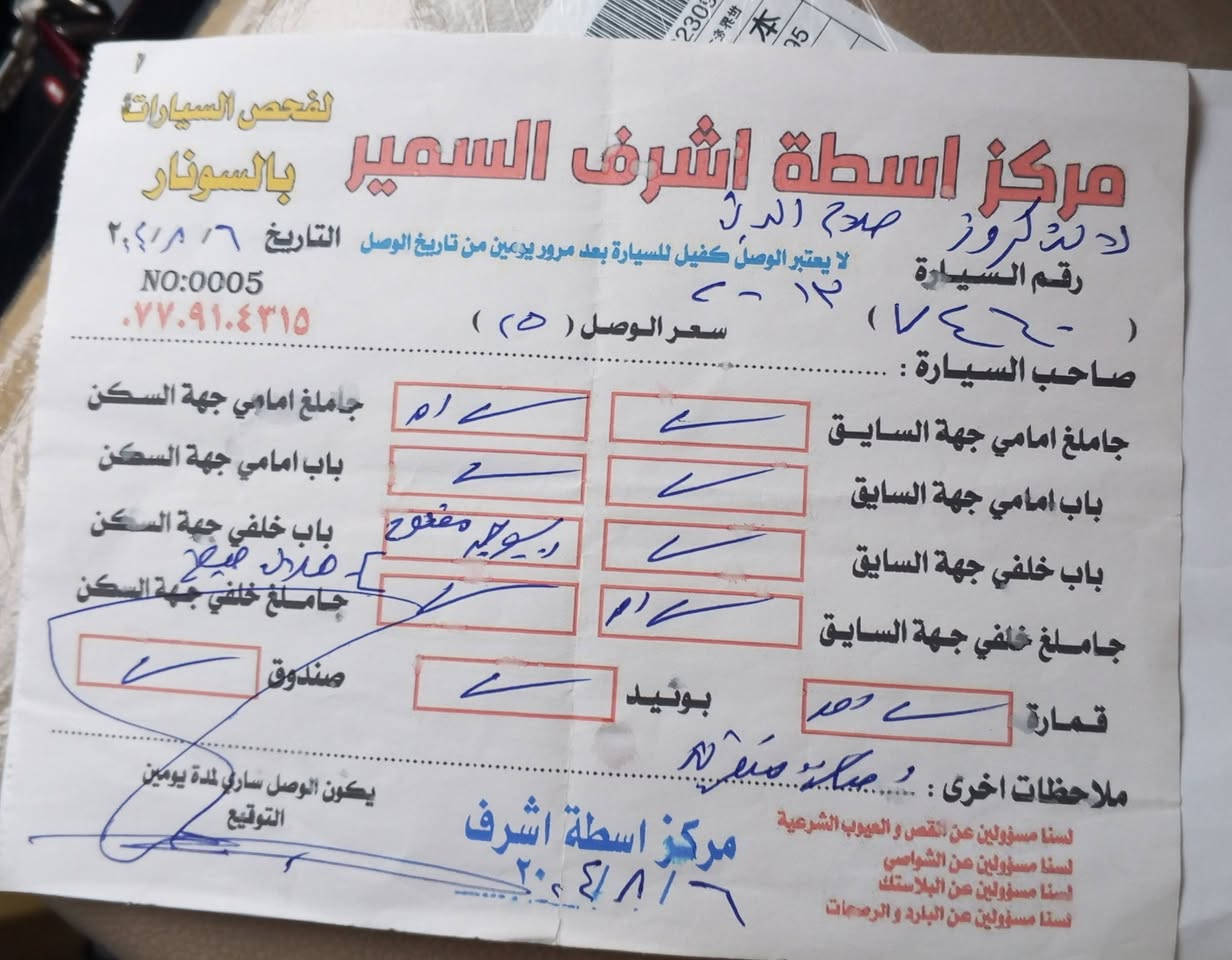 مركز اسطة اشرف السمير
لفحص السيارات
بالسونار
لاندكروز صلاح الدين
لا يعتبر الوصل كفيل للسيارة بعد مرور يومين من تاريخ الوصل
التاريخ ٦ / ٨ / ٢٠٢٤
رقم السيارة
٢٠١٣
NO:0005
( ٧٤٦٠ )
سعر الوصل ( ٢٥ )
٠٧٧٠٩١٠٤٣١٥
صاحب السيارة :
جاملغ امامي جهة السايق
جاملغ امامي جهة السكن
باب امامي جهة السايق
باب امامي جهة السكن
باب خلفي جهة السايق
مفتوح باب خلفي جهة السكن
جاملغ خلفي جهة السايق
جاملغ خلفي جهة السكن
قمارة
بونيد
صندوق
ملاحظات اخرى :
لسنا مسؤولين عن القص و العيوب الشرعية
لسنا مسؤولين عن الشواصي
لسنا مسؤولين عن البلاستك
لسنا مسؤولين عن البارد و الرصعات
مركز اسطة اشرف
٦ / ٨ / ٢٠٢٤
يكون الوصل ساري لمدة يومين
التوقيع